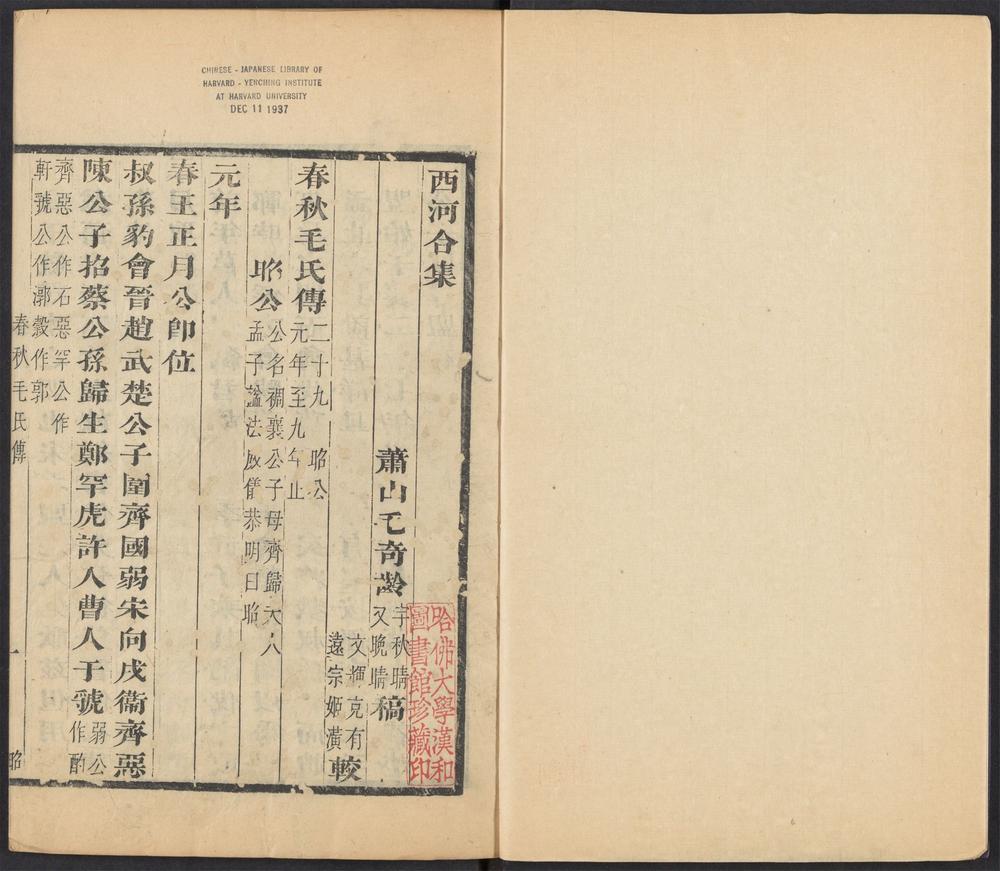 CHINESE - JAPANESE LIBRARY OF
HARVARD - YENCHING INSTITUTE
AT HARVARD UNIVERSITY
DEC 11 1937
西河合集
蕭山毛奇齡字秋晴又晚晴稿
春秋毛氏傳二十九 昭公元年至九年止
文輝克有遠宗姬潢較
昭公公名稠襄公子母齊歸大人孟子謚法威儀恭明曰昭
元年
春王正月公卽位
叔孫豹會晉趙武楚公子圍齊國弱宋向戌衞齊惡
陳公子招蔡公孫歸生鄭罕虎許人曹人于虢弱公作酌
齊惡公作石惡罕公作
軒虢公作漷穀作郭
春秋毛氏傳
一
昭
哈佛大學漢和
圖書館珍藏印